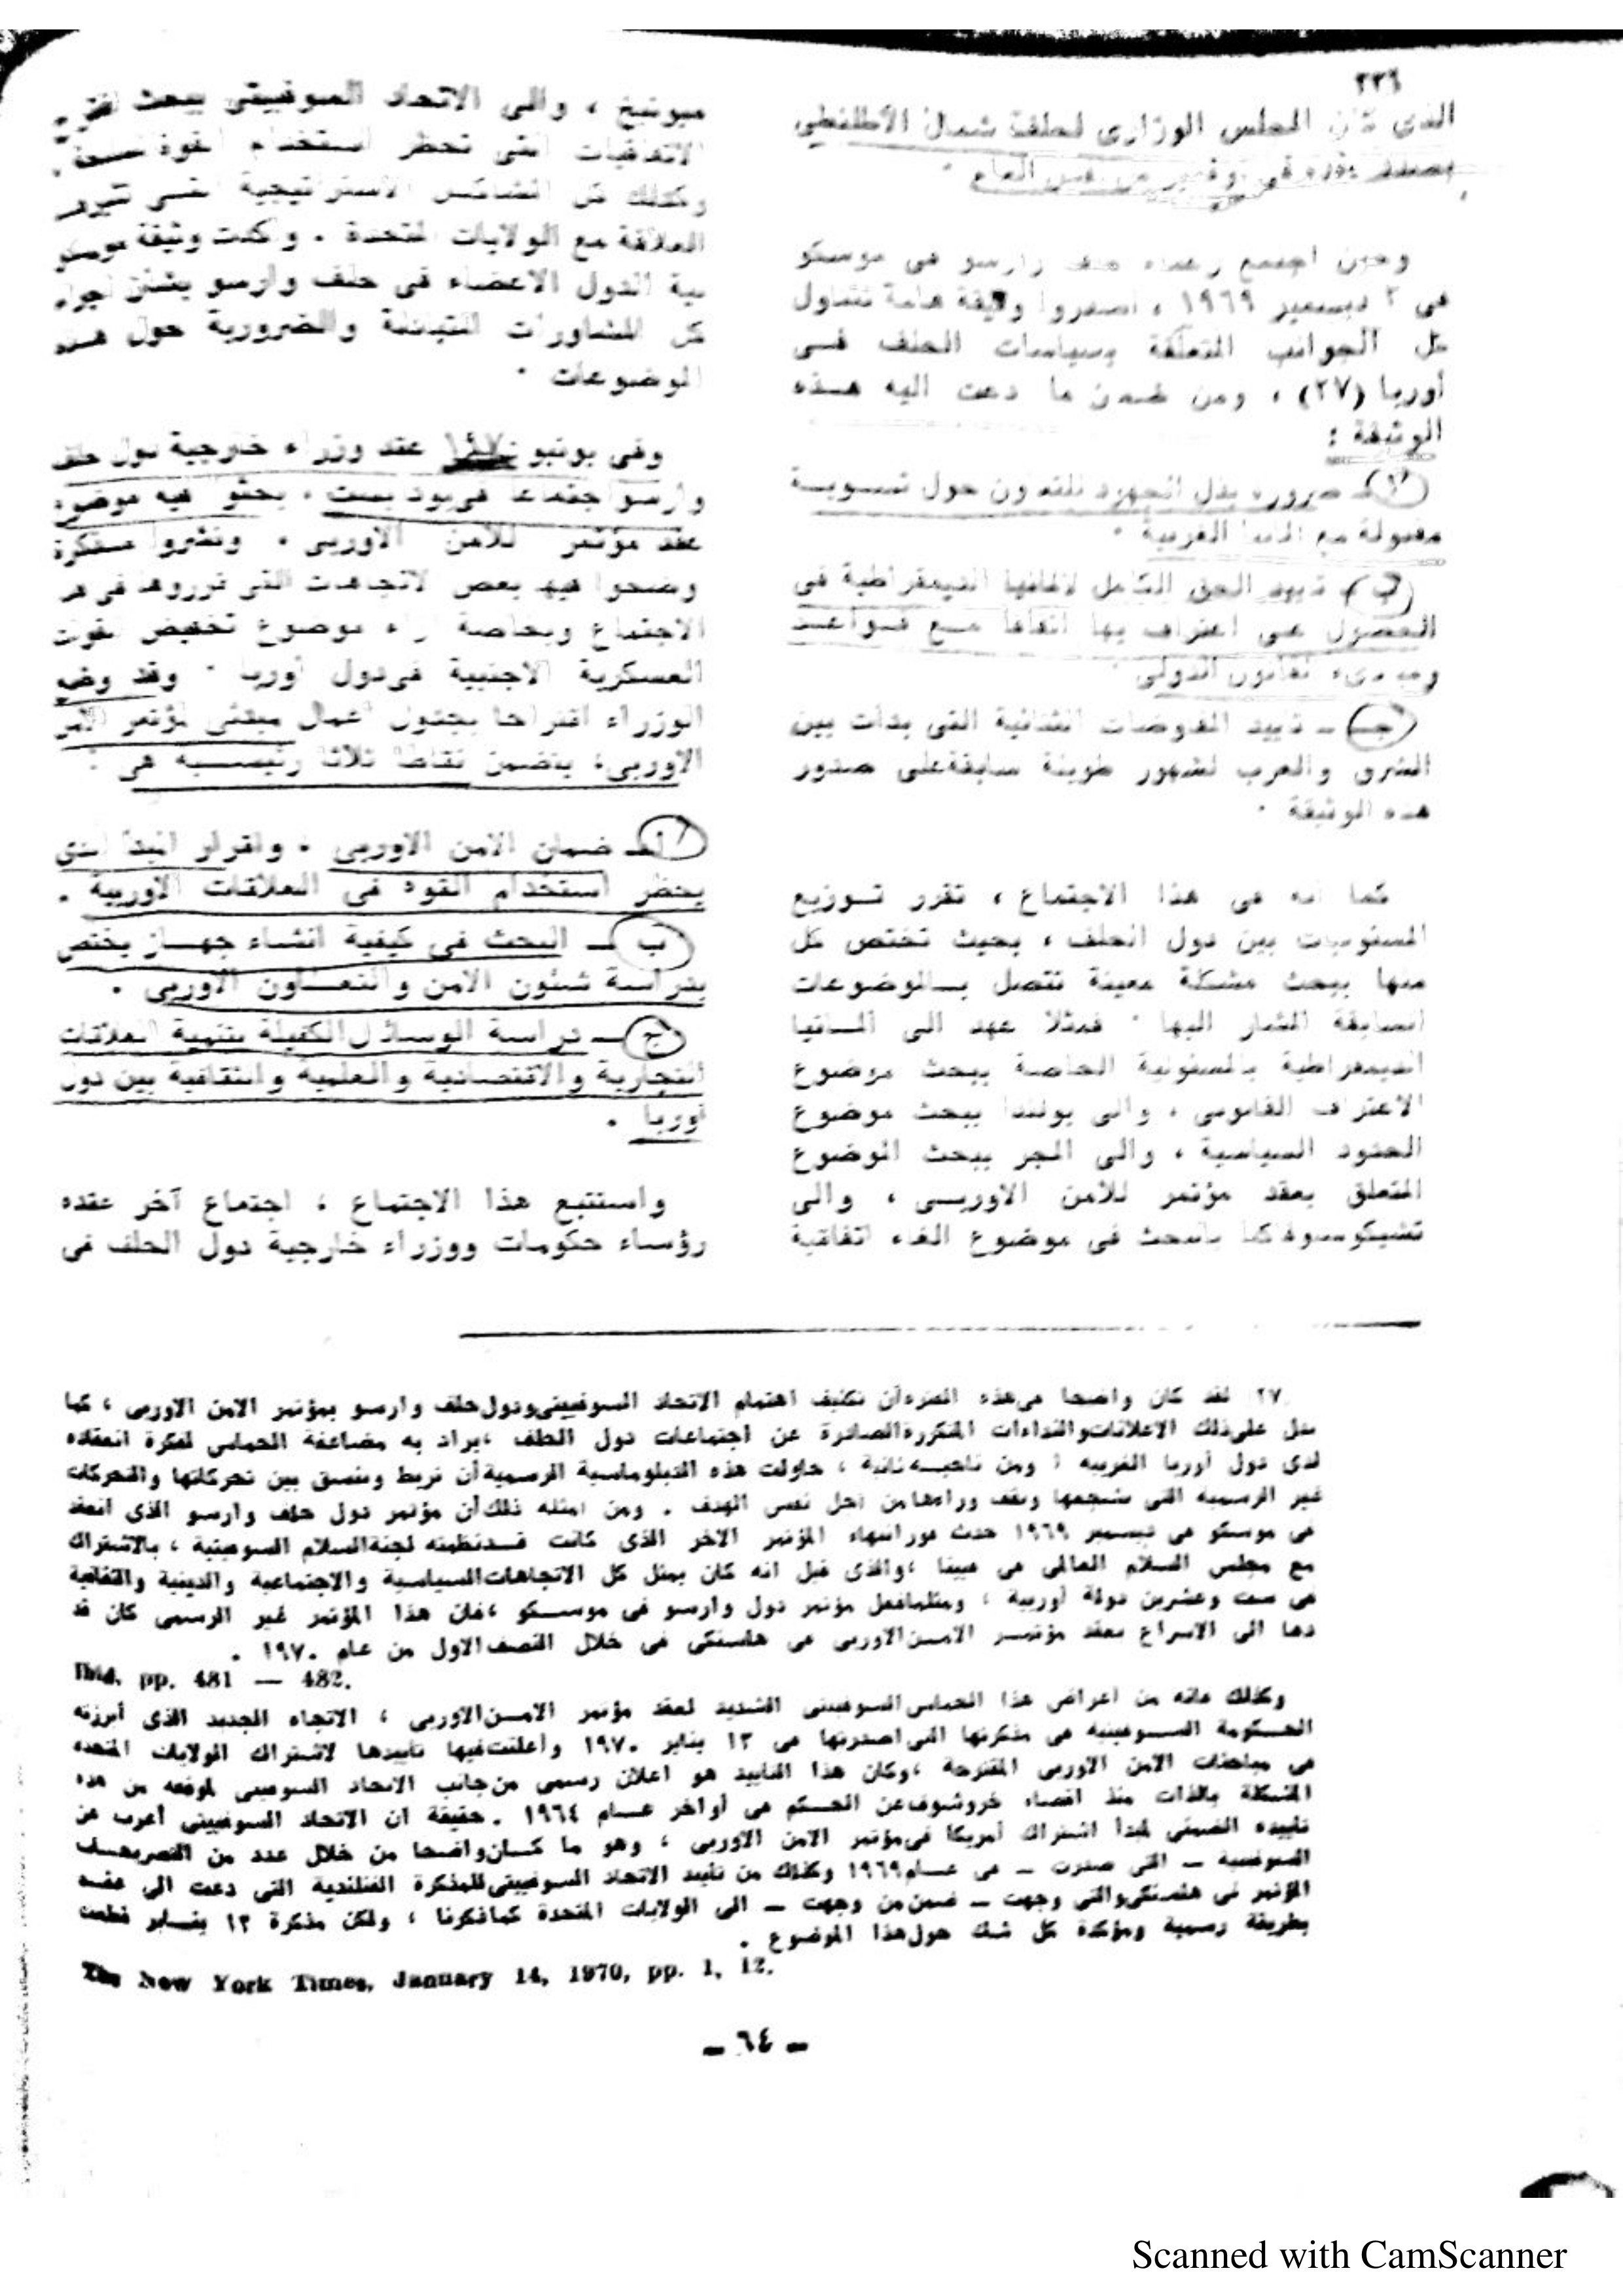 ٢٢٦
الذي كان المجلس الوزارى لحلف شمال الاطلنطى
بصدد عقده فى نوفمبر من نفس العام .
وحين اجتمع زعماء حلف وارسو فى موسكو
فى ٢ ديسمبر ١٩٦٩ ، اصدروا وثيقة هامة تتناول
كل الجوانب المتعلقة بسياسات الحلف فى
أوربا (٢٧) ، ومن ضمن ما دعت اليه هذه
الوثيقة :
أ ـ ضرورة بذل الجهود للتعاون حول تسوية
مقبولة مع المانيا الغربية .
ب ـ تأييد الحق الكامل لالمانيا الديمقراطية فى
الحصول على اعتراف بها اتفاقا مع قواعد
ومبادىء القانون الدولى .
جـ ـ تأييد المفاوضات الثنائية التى بدأت بين
الشرق والغرب لشهور طويلة سابقة على صدور
هذه الوثيقة .
كما أنه فى هذا الاجتماع ، تقرر توزيع
المسئوليات بين دول الحلف ، بحيث تختص كل
منها ببحث مشكلة معينة تتصل بالموضوعات
السابقة المشار اليها . فمثلا عهد الى المانيا
الديمقراطية بالمسئولية الخاصة ببحث موضوع
الاعتراف القانونى ، والى بولندا ببحث موضوع
الحدود السياسية ، والى المجر ببحث الموضوع
المتعلق بعقد مؤتمر للأمن الاوربى ، والى
تشيكوسلوفاكيا بالبحث فى موضوع الغاء اتفاقية
ميونيخ ، والى الاتحاد السوفيتى ببحث
الاتفاقيات التى تحظر استخدام القوة
وكذلك كل المشاكل الاستراتيجية التى
العلاقة مع الولايات المتحدة . وأكدت وثيقة موسكو
نية الدول الاعضاء فى حلف وارسو بشأن اجراء
كل المشاورات المتبادلة والضرورية حول هذه
الموضوعات .
وفى يونيو ١٩٧٠ عقد وزراء خارجية دول حلف
وارسو اجتماعا فى بودابست ، بحثوا فيه موضوع
عقد مؤتمر للأمن الاوربى . ونشروا مذكرة
وضحوا فيها بعض الاتجاهات التى قرروها فى هذا
الاجتماع وبخاصة ازاء موضوع تخفيض القوات
العسكرية الاجنبية فى دول أوربا . وقد وضع
الوزراء اقتراحا بجدول أعمال مبدئى لمؤتمر الأمن
الاوربى ، يتضمن نقاطا ثلاثا رئيسية هى :
أ ـ ضمان الأمن الاوربى ، واقرار المبدأ الذى
يحظر استخدام القوة فى العلاقات الاوربية .
ب ـ البحث فى كيفية انشاء جهاز يختص
بدراسة شئون الأمن والتعاون الاوربى .
ج ـ دراسة الوسائل الكفيلة بتنمية العلاقات
التجارية والاقتصادية والعلمية والثقافية بين دول
أوربا .
واستتبع هذا الاجتماع ، اجتماع آخر عقده
رؤساء حكومات ووزراء خارجية دول الحلف فى
٢٧ لقد كان واضحا فى هذه الفترة أن تكثيف اهتمام الاتحاد السوفييتى ودول حلف وارسو بمؤتمر الامن الاوربى ، كما
تدل على ذلك الاعلانات والنداءات المتكررة الصادرة عن اجتماعات دول الحلف ، يراد به مضاعفة الحماس لفكرة انعقاده
لدى دول أوربا الغربية ؛ ومن ناحية ثانية ، حاولت هذه الدبلوماسية الرسمية أن تربط وتنسق بين تحركاتها والتحركات
غير الرسمية التى تشجعها وتقف وراءها من أجل نفس الهدف . ومن أمثلة ذلك أن مؤتمر دول حلف وارسو الذى انعقد
فى موسكو فى ديسمبر ١٩٦٩ حدث فور انتهاء المؤتمر الاخر الذى كانت قد نظمته لجنة السلام السوفيتية ، بالاشتراك
مع مجلس السلام العالمى فى فيينا ، والذى قيل انه كان يمثل كل الاتجاهات السياسية والاجتماعية والدينية والثقافية
فى ست وعشرين دولة أوربية ، ومثلما فعل مؤتمر دول وارسو فى موسكو ، فان هذا المؤتمر غير الرسمى كان قد
دعا الى الاسراع بعقد مؤتمر الامن الاوربى فى هلسنكى فى خلال النصف الاول من عام ١٩٧٠ .
Ibid, pp. 481 — 482.
وكذلك فانه من أعراض هذا الحماس السوفيتى الشديد لعقد مؤتمر الامن الاوربى ، الاتجاه الجديد الذى أبرزته
الحكومة السوفيتية فى مذكرتها التى اصدرتها فى ١٣ يناير ١٩٧٠ وأعلنت فيها تأييدها لاشتراك الولايات المتحدة
فى مباحثات الامن الاوربى المقترحة ، وكان هذا التأييد هو اعلان رسمى من جانب الاتحاد السوفيتى لموقفه من هذه
المشكلة بالذات منذ اقصاء خروشوف عن الحكم فى أواخر عام ١٩٦٤ . حقيقة أن الاتحاد السوفييتى أعرب عن
تأييده الضمنى لمبدأ اشتراك أمريكا فى مؤتمر الامن الاوربى ، وهو ما كان واضحا من خلال عدد من التصريحات
السوفيتية ـ التى صدرت ـ فى عام ١٩٦٩ وكذلك من تأييد الاتحاد السوفييتى للمذكرة الفنلندية التى دعت الى عقد
المؤتمر فى هلسنكى والتى وجهت ـ ضمن من وجهت ـ الى الولايات المتحدة كما ذكرنا ، ولكن مذكرة ١٣ يناير قطعت
بطريقة رسمية ومؤكدة كل شك حول هذا الموضوع .
The New York Times, January 14, 1970, pp. 1, 12.
ـ ٦٤ ـ
Scanned with CamScanner